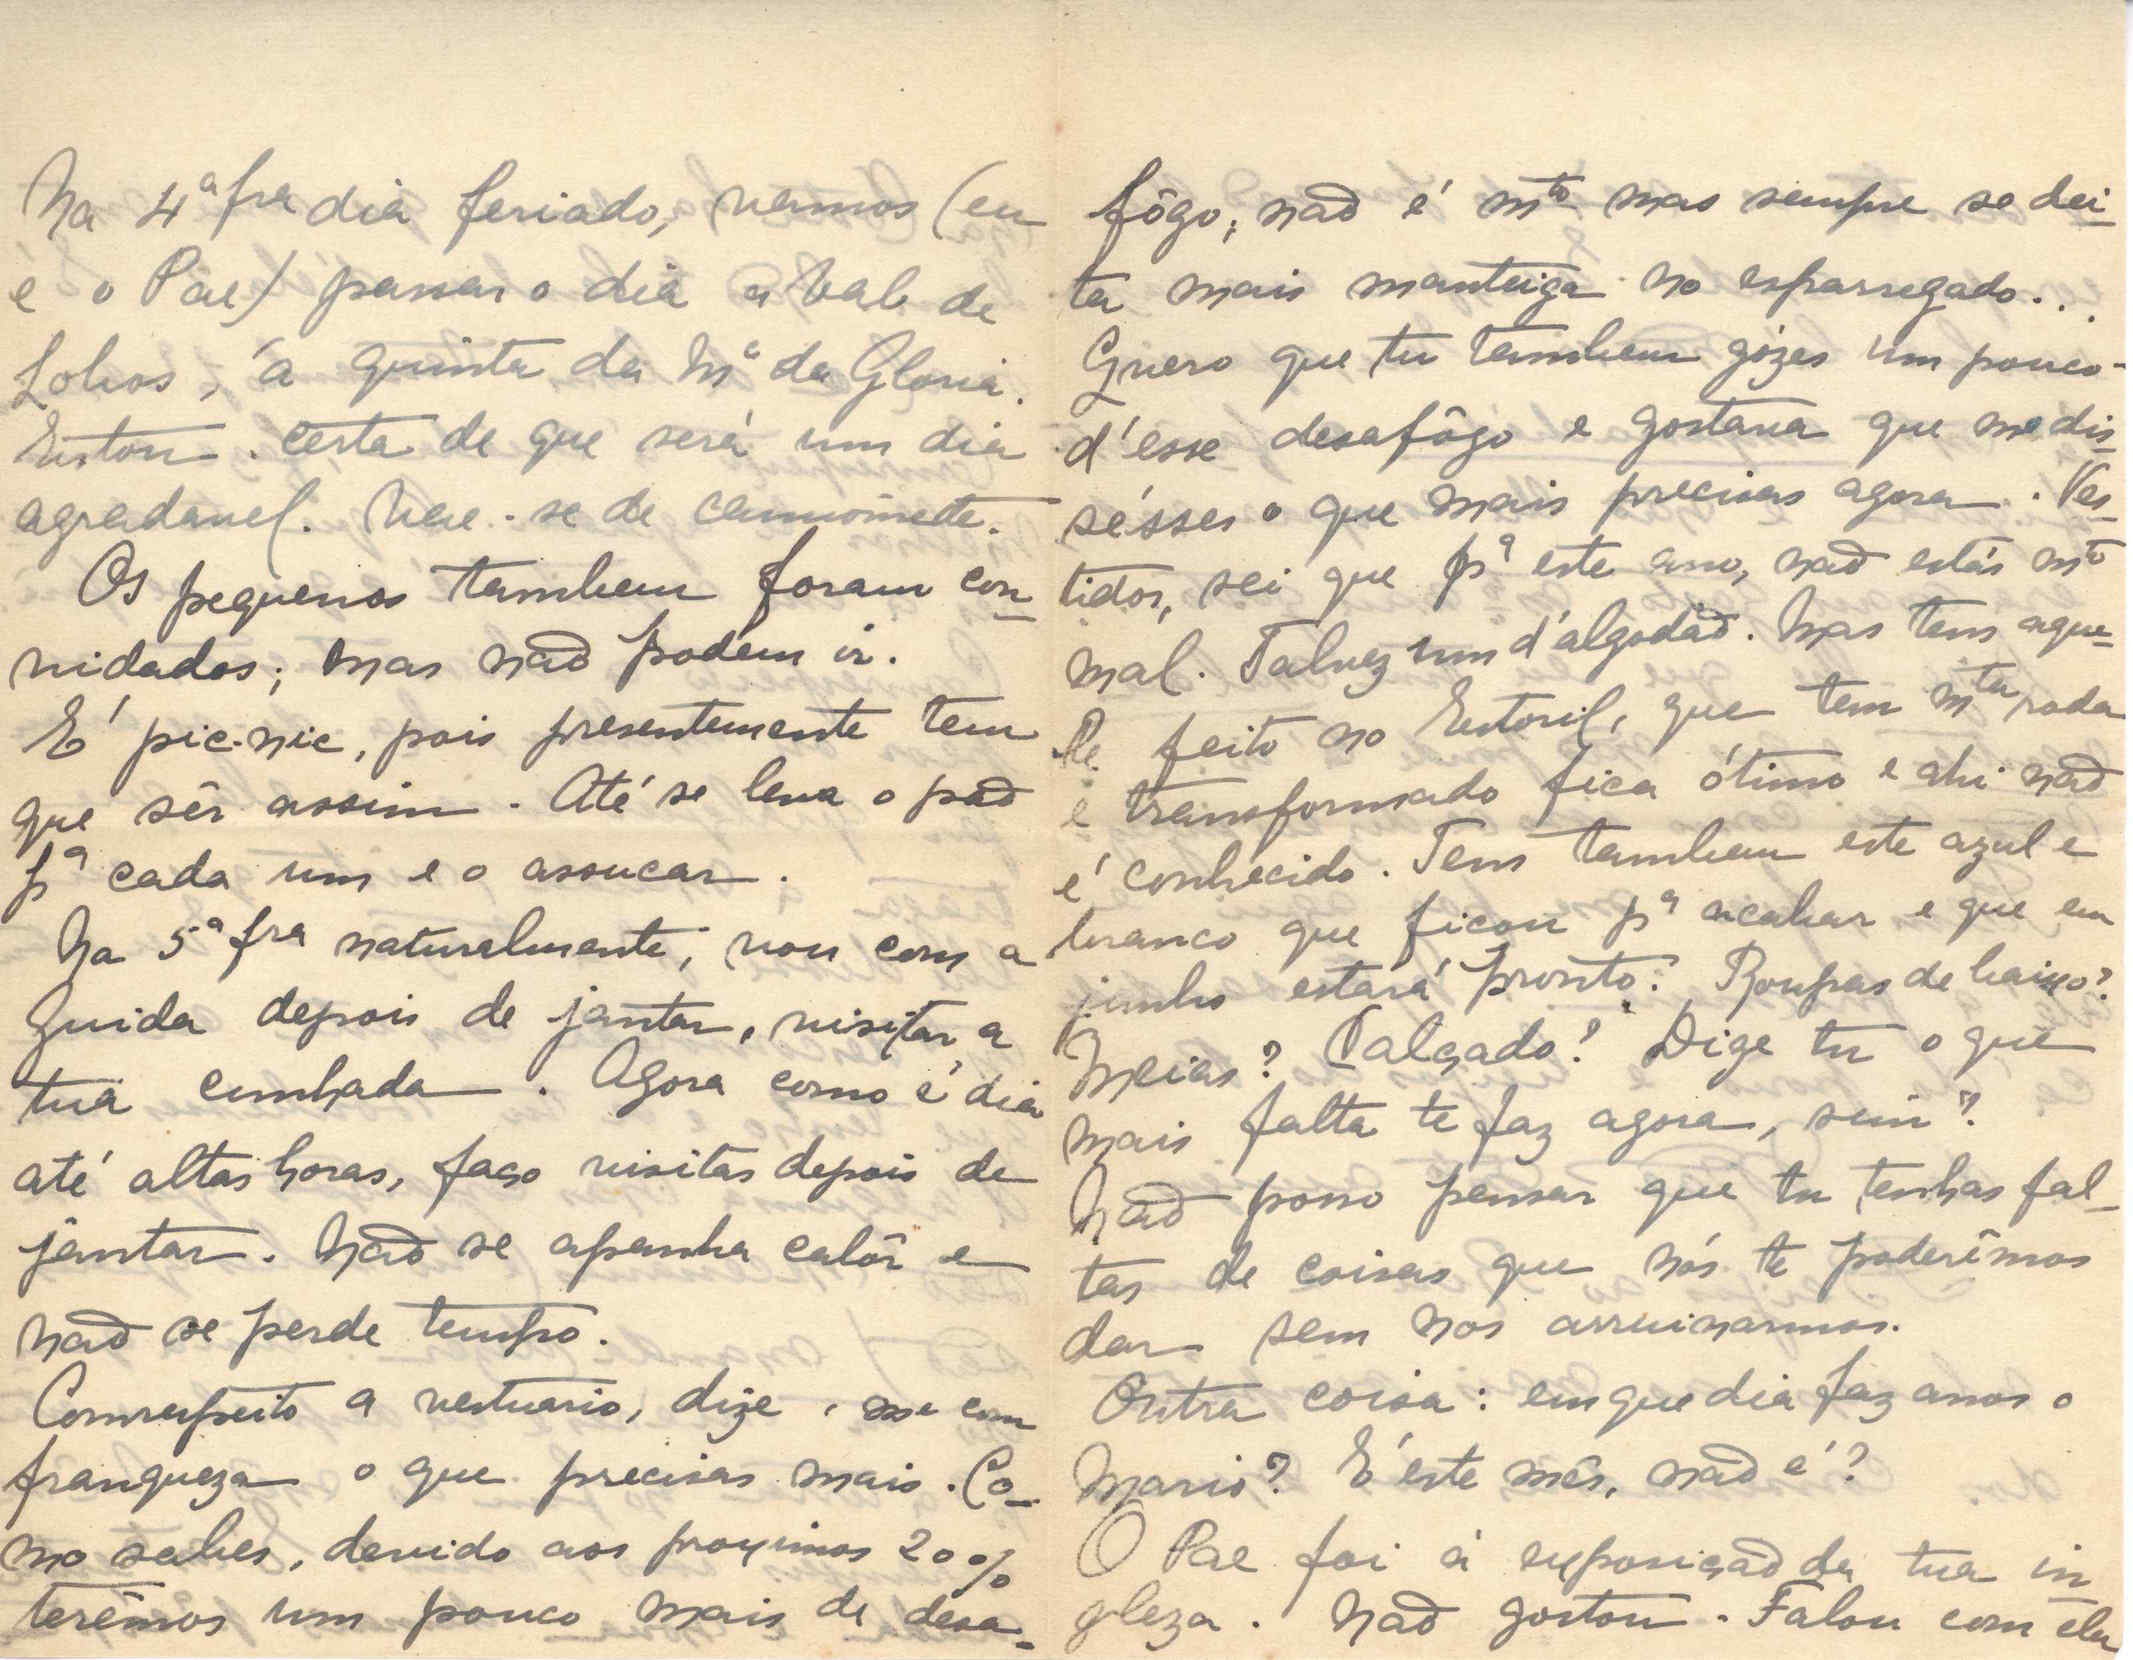 Na 4ª fra dia feriado, vamos (eu
e o Pae) passar o dia a Vale de
Lobos, á quinta da Mª da Gloria.
Estou certa de que será um dia
agradavel. Vae-se de camionete.
Os pequenos tambem foram con-
vidados; mas não podem ir.
É pic-nic, pois presentemente tem
que sêr assim. Até se leva o pão
pª cada um e o assucar.
Na 5ª fra naturalmente, vou com a
Guida depois de jantar, visitar a
tua cunhada. Agora como é dia
até altas horas, faço visitas depois de
jantar. Não se apanha calôr e
não se perde tempo.
Com respeito a vestuario, dize-me com
franqueza o que precisas mais. Co-
mo sabes, devido aos proximos 20%
terêmos um pouco mais de desa-
fôgo; não é mto mas sempre se dei-
ta mais manteiga no esparregado...
Quero que tu tambem gózes um pouco
d'esse desafôgo e gostava que me dis-
sésses o que mais precisas agora. Ves-
tidos, sei que pª este ano, não estás mto
mal. Talvez um d'algodão. Mas tens aque-
le feito no Estoril, que tem mta roda
e transformado fica ótimo e ahi não
é conhecido. Tens tambem este azul e
branco que ficou pª acabar e que em
junho estará pronto. Roupas de baixo?
Meias? Calçado? Dize tu o que
mais falta te faz agora, sim?
Não posso pensar que tu tenhas fal-
tas de coisas que nós te poderêmos
dar sem nos arruinarmos.
Outra coisa: em que dia faz anos o
Mario? É este mês, não é?
O Pae foi á exposição da tua in-
gleza. Não gostou. Falou com ela